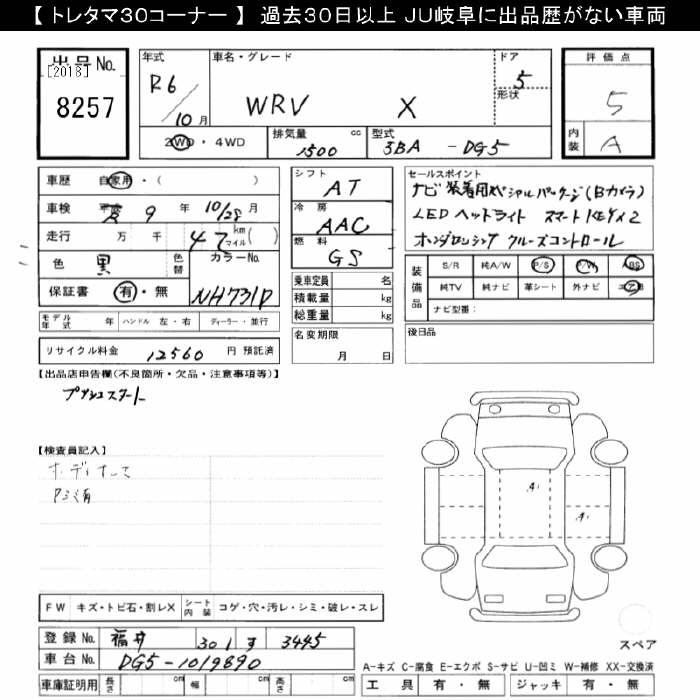 【 トレタマ30コーナー 】 過去30日以上 JU岐阜に出品歴がない車両
出品No.
[2018]
8257
年式
R6
10月
車名・グレード
WRV X
ドア
5
形状
評価点
5
内装
A
2WD・4WD
排気量 cc
1500
型式
3BA - DG5
車歴 自家用・( )
車検 9年 10/28月
走行 万 千 47 km マイル( )
色 黒 色替
カラーNo.
NH731P
保証書 有・無
シフト
AT
冷房
AAC
燃料
GS
乗車定員 名
積載量 kg
総重量 kg
名変期限
月 日
セールスポイント
ナビ装着用スペシャルパッケージ(Bカメラ)
LEDヘッドライト スマートKEY×2
ホンダセンシング クルーズコントロール
装備品
S/R 純A/W P/S P/W ABS
純TV 純ナビ 革シート 外ナビ
ナビ型番:
モデル年式 年 ハンドル 左・右 ディーラー・並行
後日品
リサイクル料金 12560 円 預託済
【出品店申告欄(不良箇所・欠品・注意事項等)】
プッシュスタート
【検査員記入】
A1
A1
FW キズ・トビ石・割レX シート内装 コゲ・穴・汚レ・シミ・破レ・スレ
登録No. 福井 301 す 3445
車台No. DG5-1019890
車庫証明用 長さ cm 幅 cm 高さ cm
スペア
A-キズ C-腐食 E-エクボ S-サビ U-凹ミ W-補修 XX-交換済
工具 有・無 ジャッキ 有・無